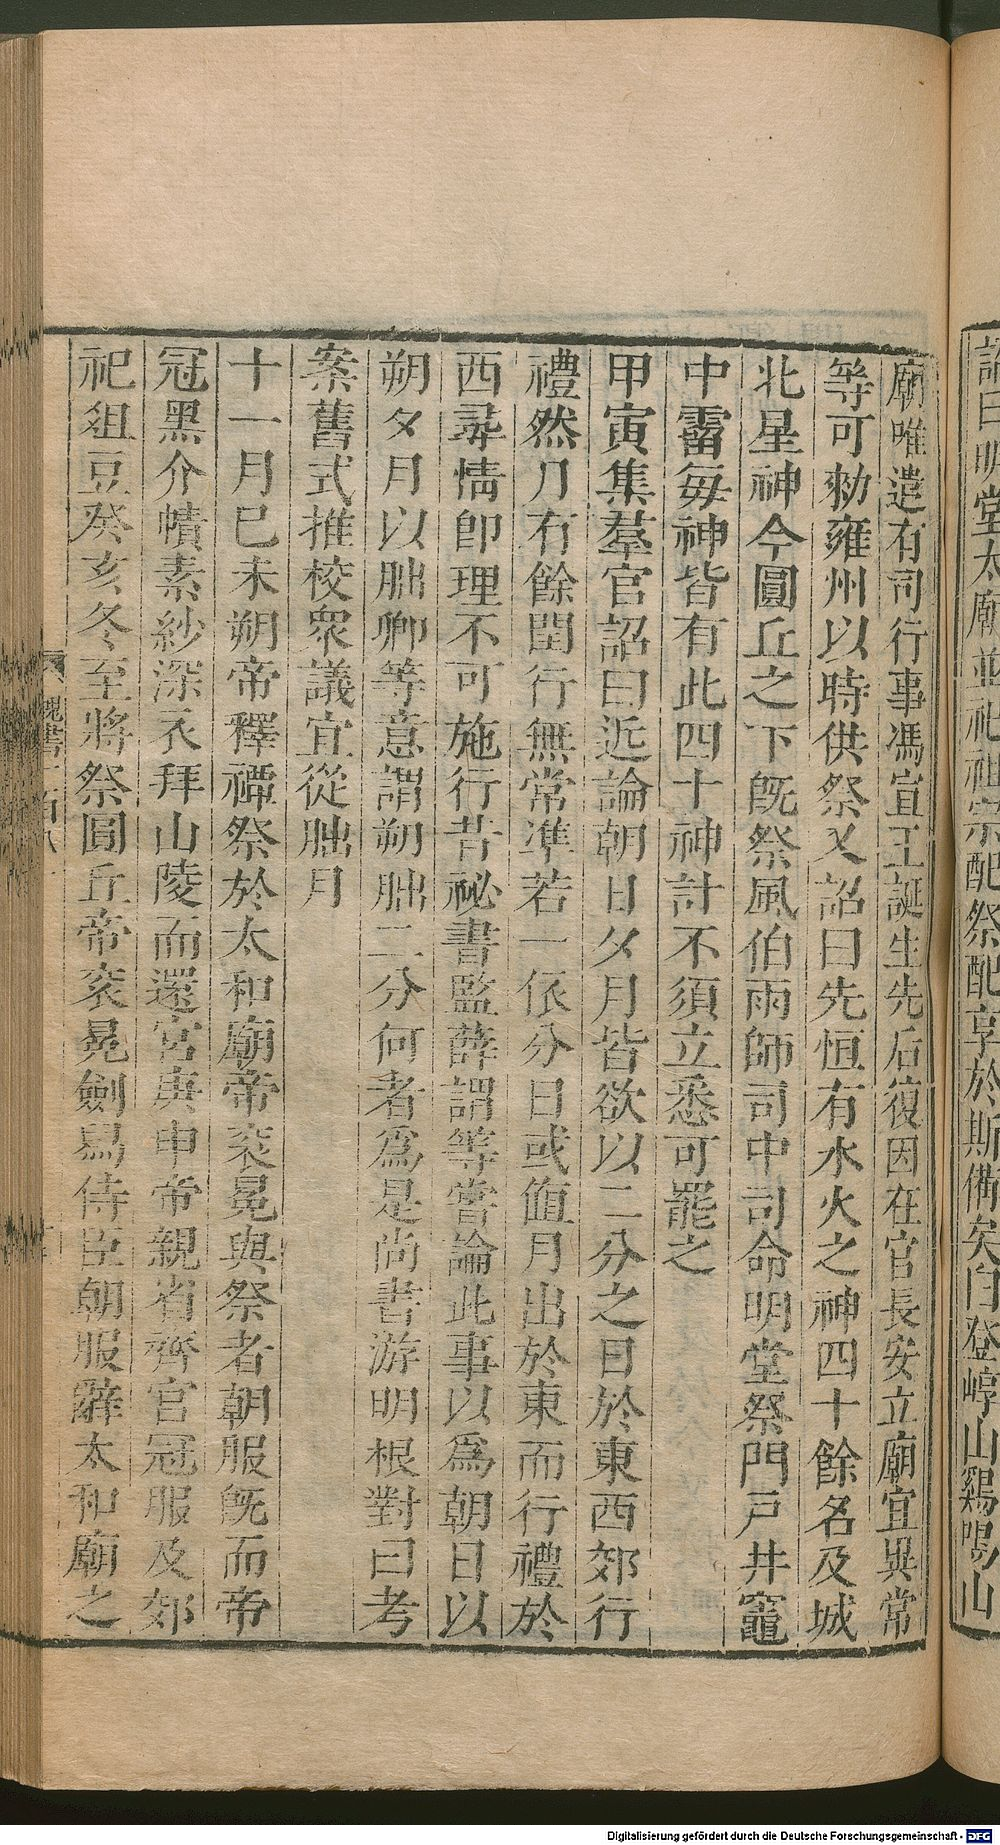 詔曰明堂太廟並祀祖宗配祭配享於斯備矣白登崞山鷄鳴山
廟唯遣有司行事馮宣王誕生先后復因在官長安立廟宜異常
等可勑雍州以時供祭又詔曰先恒有水火之神四十餘名及城
北星神今圓丘之下旣祭風伯雨師司中司命明堂祭門戶井竈
中霤每神皆有此四十神計不須立悉可罷之
甲寅集羣官詔曰近論朝日夕月皆欲以二分之日於東西郊行
禮然月有餘閏行無常準若一依分日或値月出於東而行禮於
西尋情卽理不可施行昔祕書監薛謂等嘗論此事以爲朝日以
朔夕月以朏卿等意謂朔朏二分何者爲是尚書游明根對曰考
案舊式推校衆議宜從朏月
十一月已未朔帝釋禫祭於太和廟帝衮冕與祭者朝服旣而帝
冠黑介幘素紗深衣拜山陵而還宮庚申帝親省齊官冠服及郊
祀俎豆癸亥冬至將祭圓丘帝衮冕劍舄侍臣朝服辭太和廟之
魏書一百八
Digitalisierung gefördert durch die Deutsche Forschungsgemeinschaft - DFG